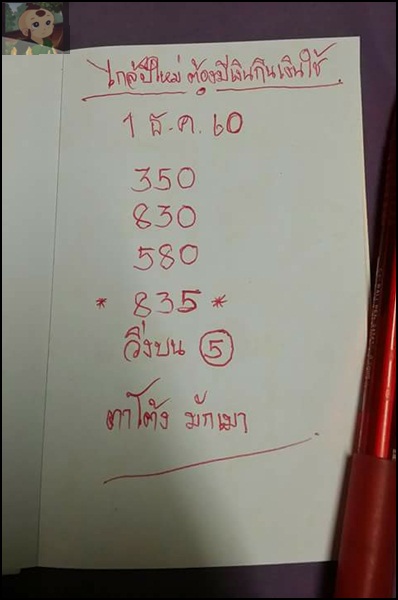 ใกล้ปีใหม่ ต้องมีเงินกินเงินใช้
1 ธ.ค. 60
350
830
580
* 835 *
วิ่งบน 5
ตาโต้ง มักเมา